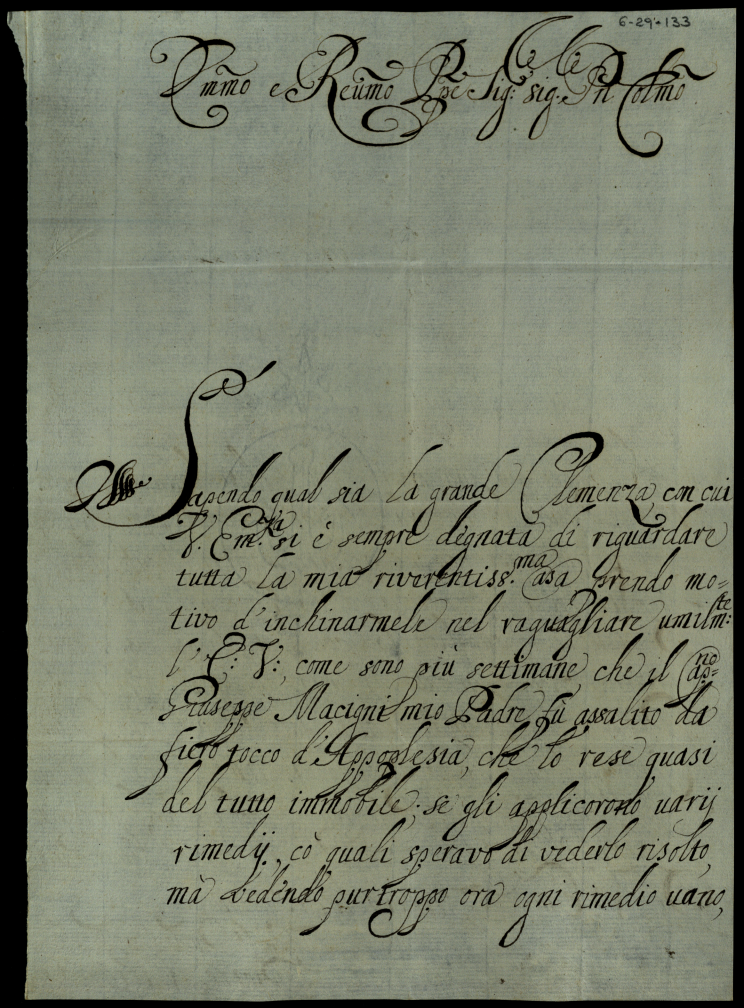 6-29-133
Emmo e Reumo Ppe Sig: sig: Pn Colmo
Sapendo qual sia la grande Clemenza, con cui
V. Em.za si è sempre degnata di riguardare
tutta la mia riverentiss.ma Casa prendo mo=
tivo d'inchinarmele nel raguagliare umilm:te
l'E: V:, come sono più settimane che il Cap:no
Giuseppe Macigni mio Padre fù assalito da
fiero tocco d'Appoplesia, che lo rese quasi
del tutto immobile; se gli applicorono varij
rimedij, cò quali speravo di vederlo risolto,
mà vedendo purtroppo ora ogni rimedio vano,